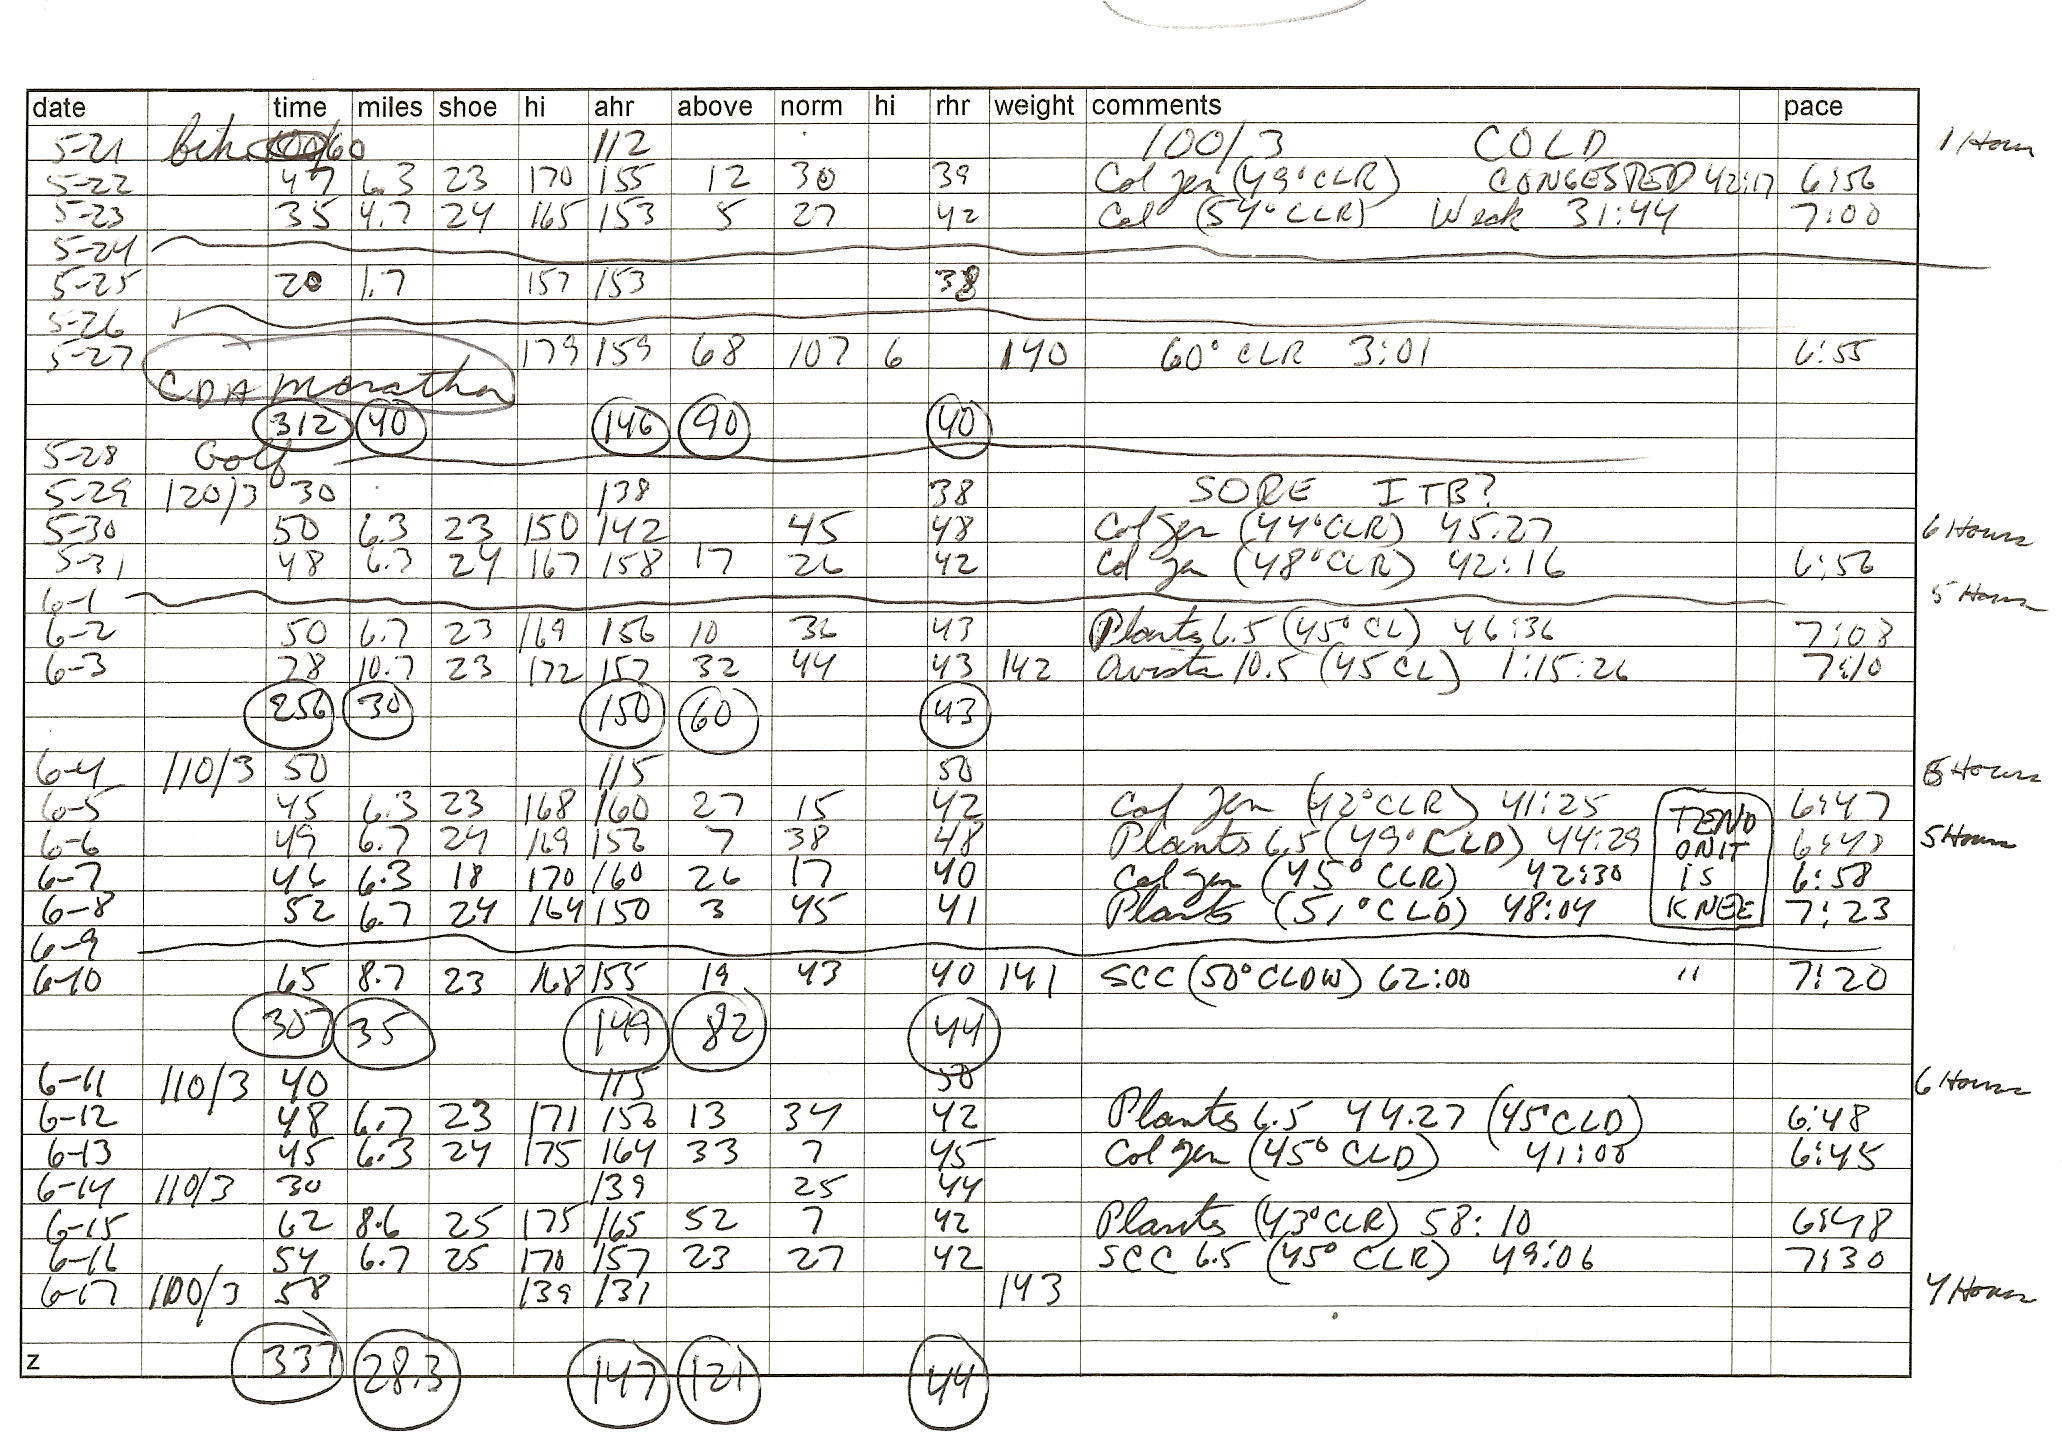 date time miles shoe hi ahr above norm hi rhr weight comments pace
5-21 60 112 100/3 COLD 1 Hour
5-22 47 6.3 23 170 155 12 30 39 Col gen (49° CLR) CONGESTED 42:17 6:56
5-23 35 4.7 24 165 153 5 27 42 Col (54° CLR) Weak 31:44 7:00
5-24
5-25 20 1.7 157 153 38
5-26
5-27 179 159 68 107 6 140 60° CLR 3:01 6:55
CDA marathon
312 40 146 90 40
5-28 Golf
5-29 120/3 30 138 38 SORE ITB?
5-30 50 6.3 23 150 142 45 48 Col gen (44° CLR) 45:27 6 Hours
5-31 48 6.3 24 167 158 17 26 42 Col gen (48° CLR) 42:16 6:56
6-1 5 Hours
6-2 50 6.7 23 169 156 10 36 43 Plants 6.5 (45° CL) 46:36 7:08
6-3 78 10.7 23 172 157 32 44 43 142 Avista 10.5 (45 CL) 1:15:26 7:10
256 30 150 60 43
6-4 110/3 50 115 50 Hours
6-5 45 6.3 23 168 160 27 15 42 Col gen (42° CLR) 41:25 TEND 6:47
6-6 49 6.7 24 169 156 7 38 48 Plants 6.5 (49° CLD) 44:29 ONIT 5 Hours
6-7 46 6.3 18 170 160 26 17 40 Col gen (45° CLR) 42:30 is 6:58
6-8 52 6.7 24 164 150 3 45 41 Plants (51° CLD) 48:04 KNEE 7:23
6-9
6-10 65 8.7 23 168 155 19 43 40 141 SCC (50° CLDW) 62:00 " 7:20
307 35 149 82 44
6-11 110/3 40 115 50 6 Hours
6-12 48 6.7 23 171 156 13 34 42 Plants 6.5 44.27 (45° CLD) 6:48
6-13 45 6.3 24 175 164 33 7 45 Col gen (45° CLD) 41:08 6:45
6-14 110/3 30 139 25 44
6-15 62 8.6 25 175 165 52 7 42 Plants (43° CLR) 58:10 6:48
6-16 54 6.7 25 170 157 23 27 42 SCC 6.5 (45° CLR) 49:06 7:30
6-17 100/3 58 139 131 143 4 Hours
z 337 28.3 147 121 44